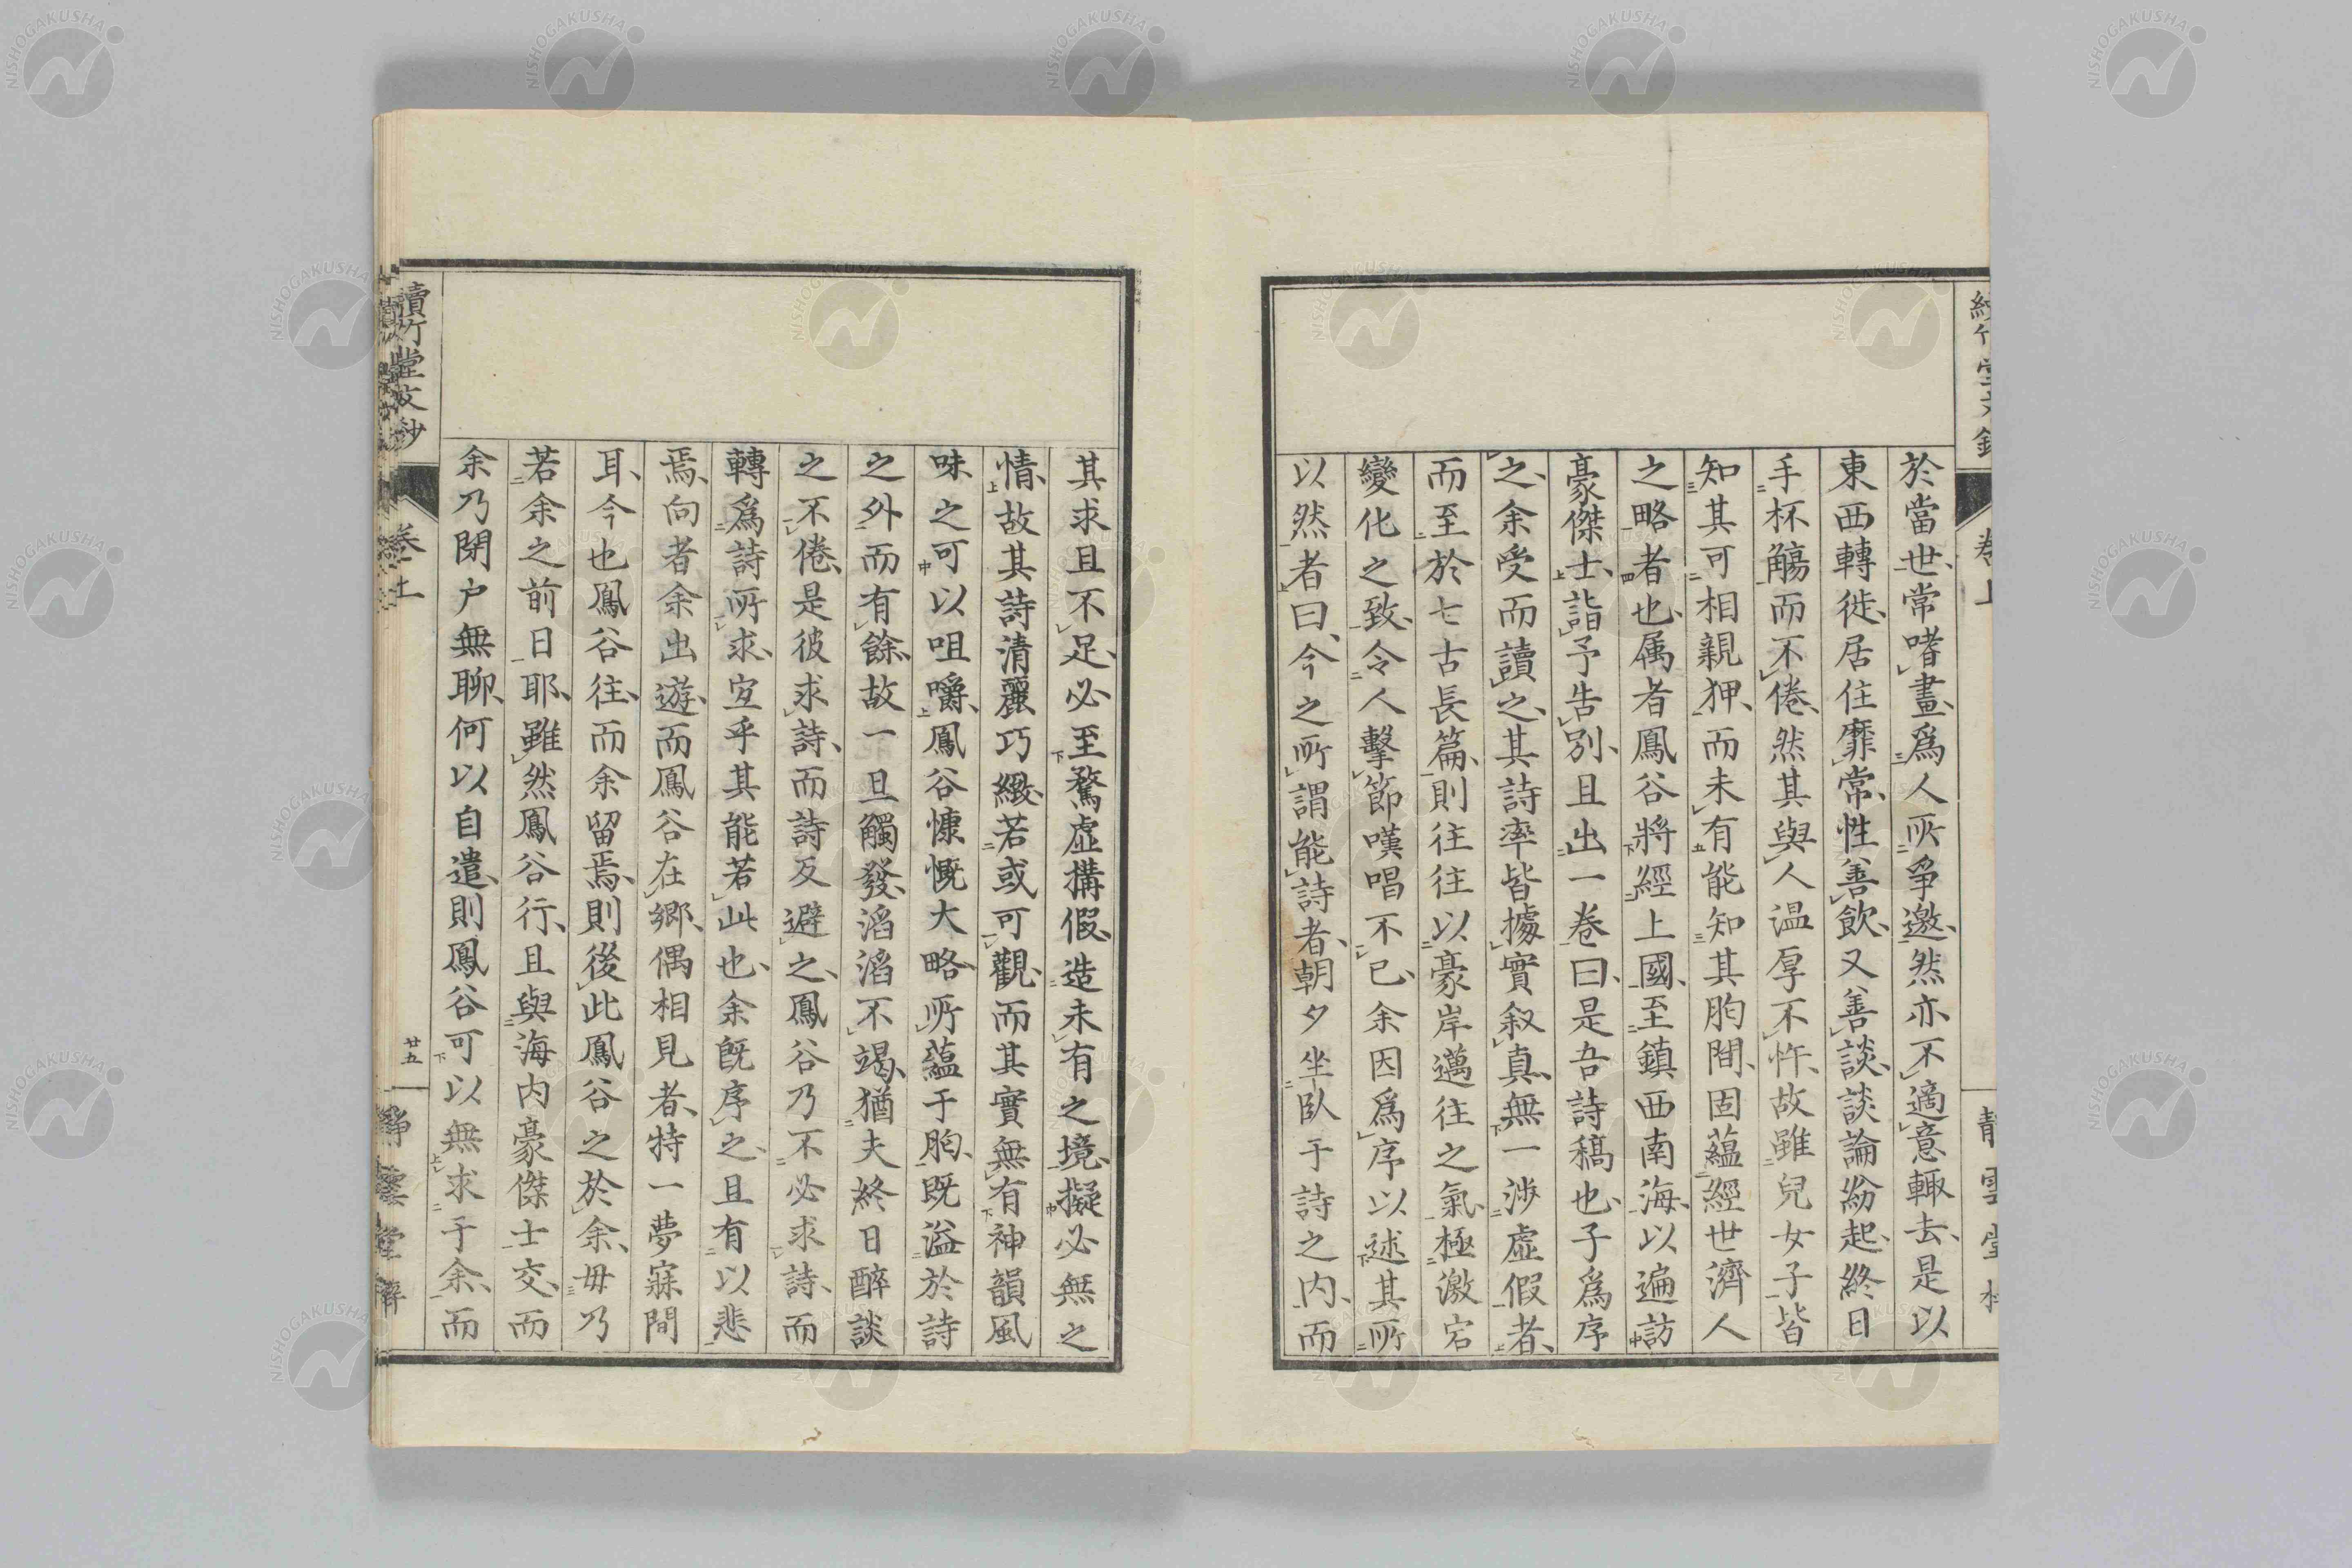 於當世、常嗜畫、爲人所爭邀、然亦不適意輙去、是以
東西轉徙、居住靡常、性善飲、又善談、談論紛起、終日
手杯觴而不倦、然其與人温厚不忤故雖兒女子皆
知其可相親狎、而未有能知其胷間、固蘊經世濟人
之略者也、属者鳳谷將經上國、至鎮西南海、以遍訪
豪傑士、詣予告別、且出一卷曰、是吾詩稿也、子爲序
之、余受而讀之、其詩率皆據實叙真、無一渉虚假者、
而至於七古長篇、則往往以豪岸邁往之氣、極激宕
變化之致、令人擊節嘆唱不已、余因爲序以述其所
以然者曰、今之所謂能詩者、朝夕坐臥于詩之内、而
其求且不足、必至騖虚搆假、造未有之境、擬必無之
情、故其詩清麗巧緻、若或可觀、而其實無有神韻風
味之可以咀嚼、鳳谷慷慨大略、所蘊于胷、既溢於詩
之外而有餘、故一旦觸發、滔滔不竭、猶夫終日醉談
之不倦、是彼求詩、而詩反避之、鳳谷乃不必求詩、而
轉爲詩所求、宜乎其能若此也、余既序之、且有以悲
焉、向者余出遊、而鳳谷在鄉、偶相見者、特一夢寐間
耳、今也鳳谷往、而余留焉、則後此鳳谷之於余、毋乃
若余之前日耶、雖然鳳谷行、且與海内豪傑士交、而
余乃閉户無聊、何以自遣、則鳳谷可以無求于余、而
讀竹堂文鈔
卷上
廿五